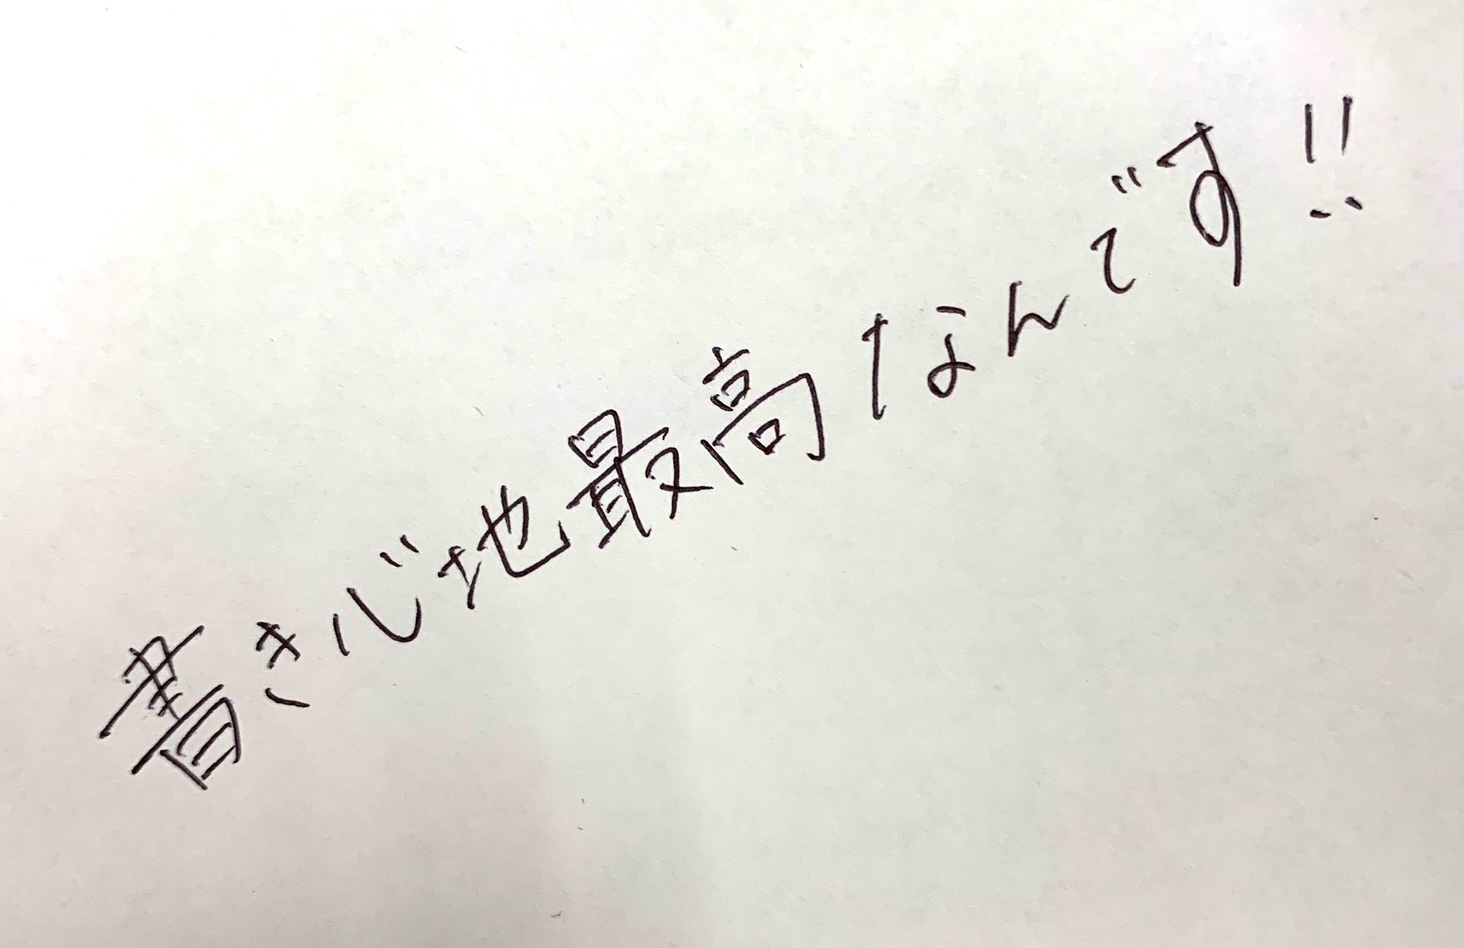 書き心地最高なんです!!